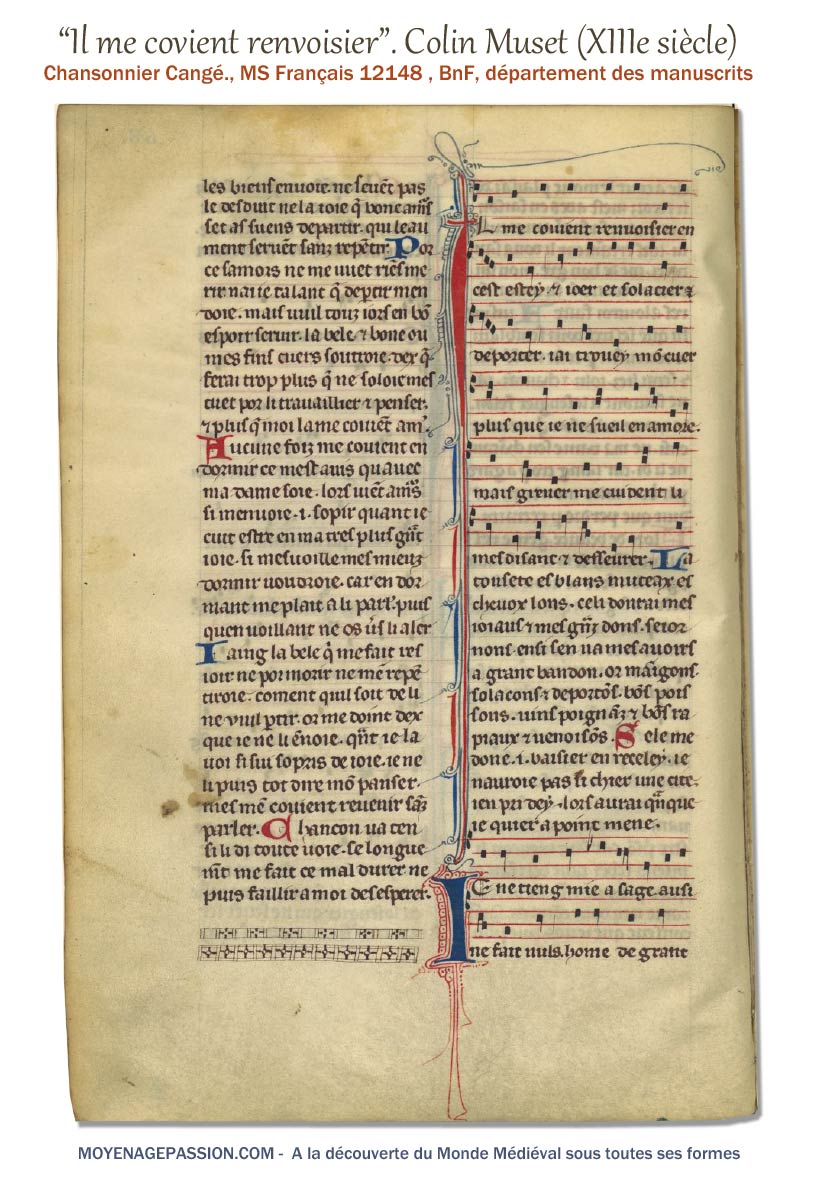 “Il me covient renvoisier”. Colin Muset (XIIIe siècle)
Chansonnier Cangé., MS Français 12148 , BnF, département des manuscrits
les biens envoie. ne sevēt pas
le desduit ne la ioie q̄ bone
set as suens departir. qui leau
ment servēt sanz repētir. Por
ce samors ne me vuet riēs me
rir. nai ie talant q̄ departir men
doie. mais vuil touz iors en bō
espoir servir. la bele ⁊ bone ou
mes fins cuers souttroie. der q̄
ferai trop plus q̄ ne soloie mes
cuet por li travaillier ⁊ penser.
⁊ plus q̄ moi la me covient
Aucune foiz me covient en
dormir ce mest avis quavec
ma dame soie. lors viēt
si menvoie .i. sopir quant ie
cuit estre en ma tres plus
ioie. si mesvoille mes mieuz
dormir voudroie. car en dor
mant me plait a li parl' puis
quen voillant ne os li aler
Iaing la bele q̄ me fait res
ioir ne por morir ne mē repē
tiroie. coment quil soit de li
ne vuil partir. or me doint dex
que ie ne li ēnoie. qn̄t ie la
voi si sui sopris de ioie. ie ne
li puis tot dire mō panser.
mes mē covient revenir
parler. Chancon va ten
si li di toute voie. se longue
mēt me fait ce mal durer ne
puis faillir a moi desesperer.
Il me covient renvoisier en
cest estey ⁊ ioer et solacier ⁊
deporter. iai trovey mō cuer
plus que ie ne sueil en amore.
mais grever me cuident li
mesdisant ⁊ desseurer. La
tousete es blans muteax es
chevox lons. celi donrai mes
ioiaus ⁊ mes dons. seior
nons. ensi sen va mes avoirs
a grant bandon. or
solacons ⁊ deportōs. bōs pois
sons. vins poignāz ⁊ bōs ra
piaux ⁊ venoisōs. Sele me
done .i. baisier en receley. ie
navroie pas si chier une cite.
ien pri dey. lors avrai
ie quier a point mene.
Je ne tieng mie a sage ausi
ne fait nuls home de grant
MOYENAGEPASSION.COM - A la découverte du Monde Médiéval sous toutes ses formes